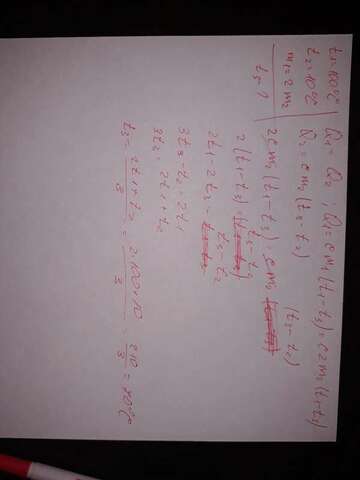 t₁=100°C
t₂=10°C
m₁=2m₂
t₃-?
Q₁= Q₂ ; Q₁=cm₁(t₁-t₃)=c2m₂(t₁-t₃)
Q₂ = cm₂(t₃-t₂)
2cm₂(t₁-t₃)=cm₂(t₃-t₂)
2(t₁-t₃)=t₃-t₂
2t₁-2t₃=t₃-t₂
3t₃-t₂=2t₁
3t₃=2t₁+t₂
t₃=2t₁+t₂/3=2·100+10/3=210/3=70°C